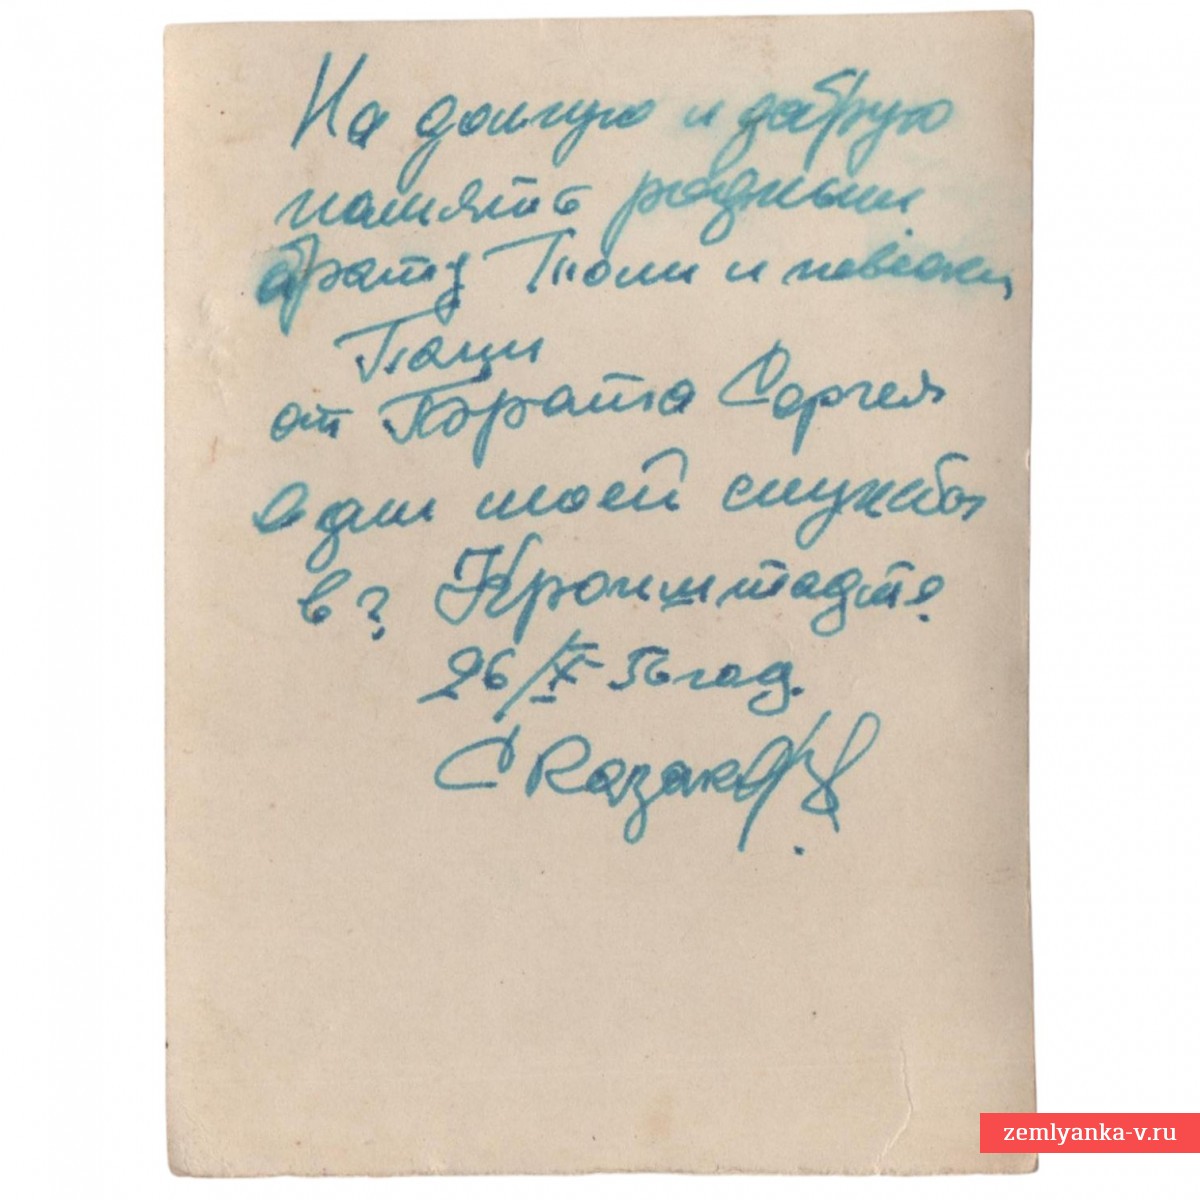 На долгую и добрую
память родным
брату Толи и невески
Таци
от Брата Сергея
в дни моей службы
в г Кронштадте.
26/X 56 год.
С Казаков
zemlyanka-v.ru